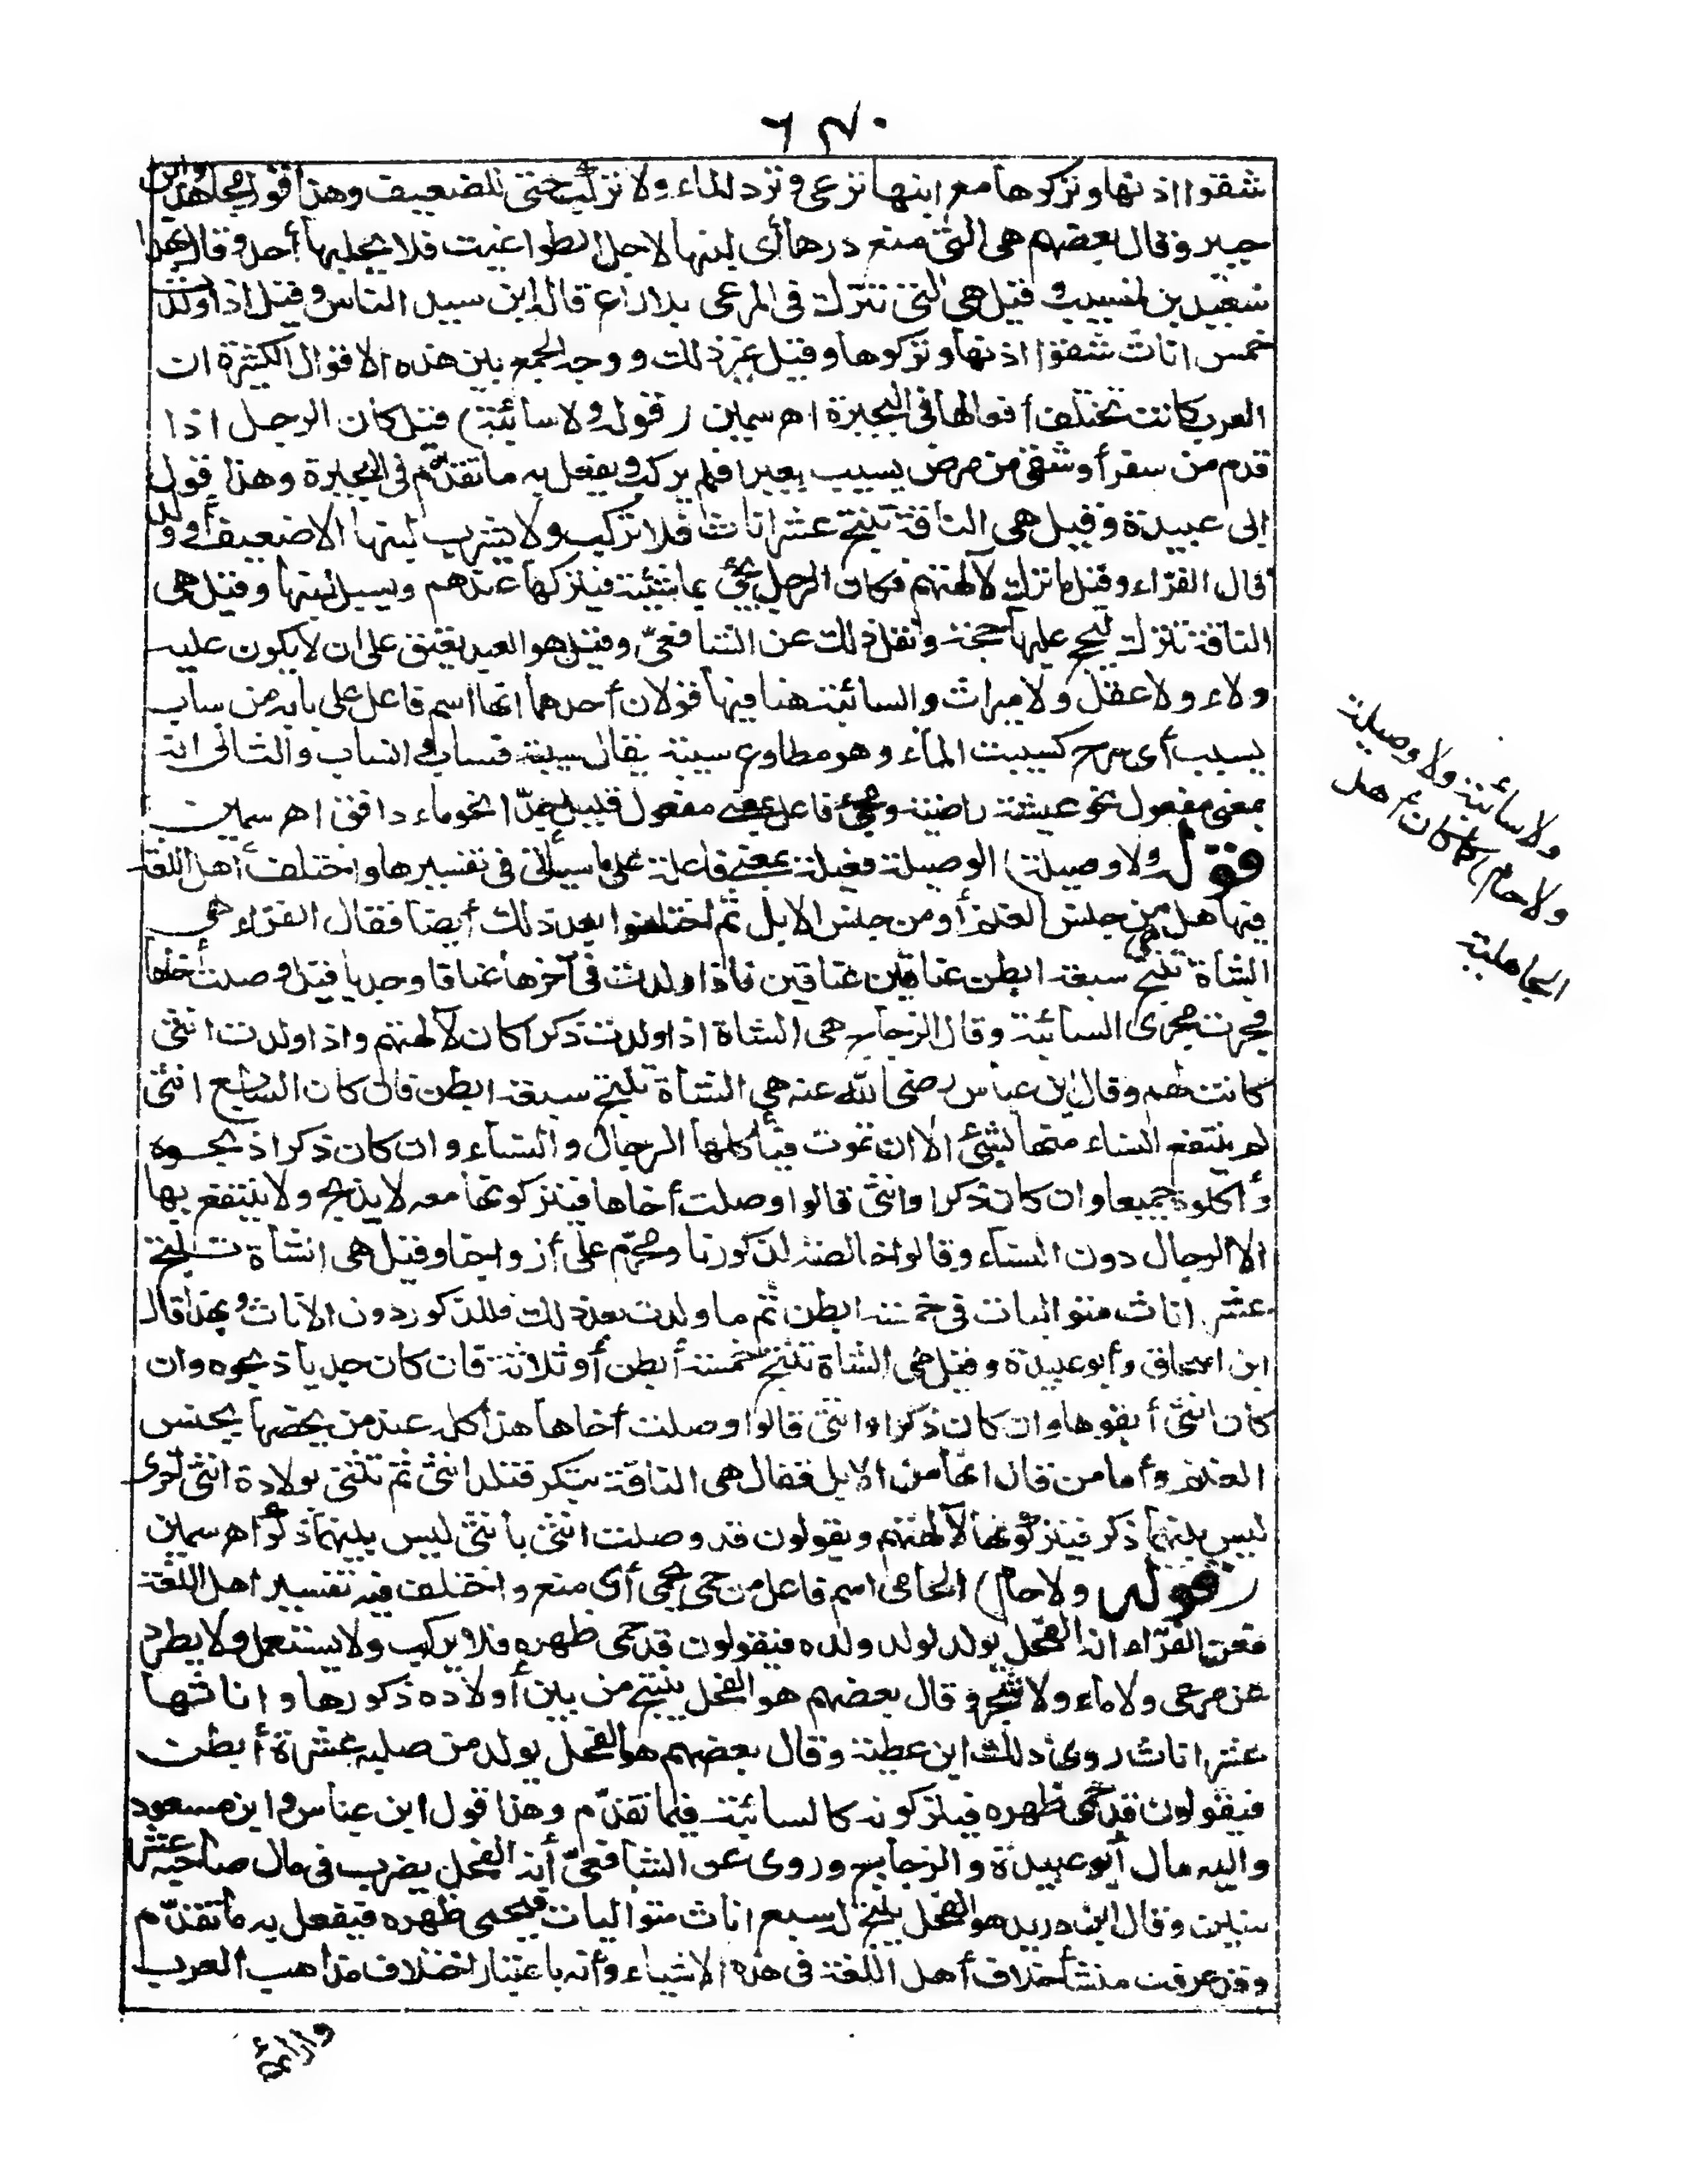 ٦٣٠
شقوا اذنها وتركوها مع ابنها ترعى وترد الماء ولا تركب حتى للضعيف وهذا قول مجاهد وابن
جبير وقال بعضهم هى التى منع درها أى لبنها لاجل الطواغيت فلا يحلبها أحد وقال بهذا
سعيد بن المسيب وقيل هى التى تترك فى المرعى بلا راع قاله ابن سيد الناس وقيل اذا ولدت
خمس اناث شقوا اذنها وتركوها وقيل غير ذلك ووجه الجمع بين هذه الاقوال الكثيرة ان
العرب كانت تختلف أفعالها فى البحيرة اهـ سمين (قوله ولا سائبة) قيل كان الرجل اذا
قدم من سفر أو شفى من مرض يسيب بعيرا فلم يركب ويفعل به ما تقدّم فى البحيرة وهذا قول
ابى عبيدة وقيل هى الناقة تنتج عشر اناث فلا تركب ولا يشرب لبنها الا ضعيف أو ولد
قال الفرّاء وقيل ما ترك لآلهتهم فكان الرجل يجئ بماشيته فيتركها عندهم ويسيل لبنها وقيل هى
الناقة تترك ليحج عليها حجة ونقل ذلك عن الشافعىّ وقيل هو العبد يعتق على ان لا يكون عليه
ولاء ولا عقل ولا ميراث والسائبة هنا فيها قولان أحدهما انها اسم فاعل على بابه من ساب
يسيب أى سرح كسيب الماء وهو مطاوع سيبته يقال سيبته فساب وانساب والثانى انه
بمعنى مفعول نحو عيشة راضية ومجئ فاعل بمعنى مفعول قليل جدّا نحو ماء دافق اهـ سمين
قوله ولا وصيلة) الوصيلة فعيلة بمعنى فاعلة على ما سيأتى فى تفسيرها واختلف أهل اللغة
فيها هل هى من جنس الغنم أو من جنس الابل ثم اختلفوا بعد ذلك أيضا فقال الفرّاء هى
الشاة تنتج سبعة ابطن عناقين عناقين فاذا ولدت فى آخرها عناقا وجديا قيل وصلت أخاها
فجرت مجرى السائبة وقال الزجاج هى الشاة اذا ولدت ذكرا كان لآلهتهم واذا ولدت انثى
كانت لهم وقال ابن عباس رضى الله عنه هى الشاة تنتج سبعة ابطن فان كان السابع انثى
لم ينتفع النساء منها بشئ الا ان تموت فيأكلها الرجال والنساء وان كان ذكرا ذبحوه
وأكلوه جميعا وان كان ذكرا وانثى قالوا وصلت أخاها فيتركونها معه لا يذبح ولا ينتفع بها
الا الرجال دون النساء وقالوا خالصة لذكورنا ومحرّم على أزواجنا وقيل هى الشاة تنتج
عشر اناث متواليات فى خمسة ابطن ثم ما ولدت بعد ذلك فللذكور دون الاناث وبهذا قال
ابن اسحاق وأبو عبيدة وقيل هى الشاة تنتج خمسة أبطن أو ثلاثة فان كان جديا ذبحوه وان
كان انثى أبقوها وان كان ذكرا وانثى قالوا وصلت أخاها هذا كله عند من يخصها بجنس
الغنم وأما من قال انها من الابل فقال هى الناقة تبتكر فتلد انثى ثم تثنى بولادة انثى اخرى
ليس بينهما ذكر فيتركونها لآلهتهم ويقولون قد وصلت انثى بأنثى ليس بينهما ذكر اهـ سمين
(قوله ولا حام) الحامى اسم فاعل من حمى يحمى أى منع واختلف فيه تفسير اهل اللغة
فعن الفرّاء انه الفحل يولد لولد ولده فيقولون قد حمى ظهره فلا يركب ولا يستعمل ولا يطرد
عن مرعى ولا ماء ولا شجر وقال بعضهم هو الفحل ينتج من بين أولاده ذكورها واناثها
عشر اناث روى ذلك ابن عطية وقال بعضهم هو الفحل يولد من صلبه عشرة أبطن
فيقولون قد حمى ظهره فيتركونه كالسائبة فيما تقدّم وهذا قول ابن عباس وابن مسعود
واليه مال أبو عبيدة والزجاج وروى عن الشافعىّ أنه الفحل يضرب فى مال صاحبه عشر
سنين وقال ابن دريد هو الفحل ينتج له سبع اناث متواليات فيحمى ظهره فيفعل به ما تقدّم
وقد عرفت منشأ خلاف أهل اللغة فى هذه الاشياء وأنه باعتبار اختلاف مذاهب العرب
ولا سائبة ولا وصيلة
ولا حام) كما كان أهل
الجاهلية